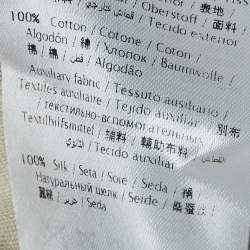 Oberstoff / 表地 /
/ 面料 / قماش خارجي / Tecido exterior
100% Cotton / Cotone / Coton /
Algodón / 綿 / Хлопок / Baumwolle /
棉 / 棉 / قطن / Algodão
Auxiliary fabric / Tessuto ausiliario /
Textiles auxiliaire / Tejido auxiliar /
текстильно-вспомогательный / 別布
Textilhilfsmittel / 辅料 / 輔助布料 /
/ Tecido auxiliar
100% Silk / Seta / Soie / Seda / 絹 /
Натуральный шелк / Seide / 桑蚕丝 /
/ حرير / Seda